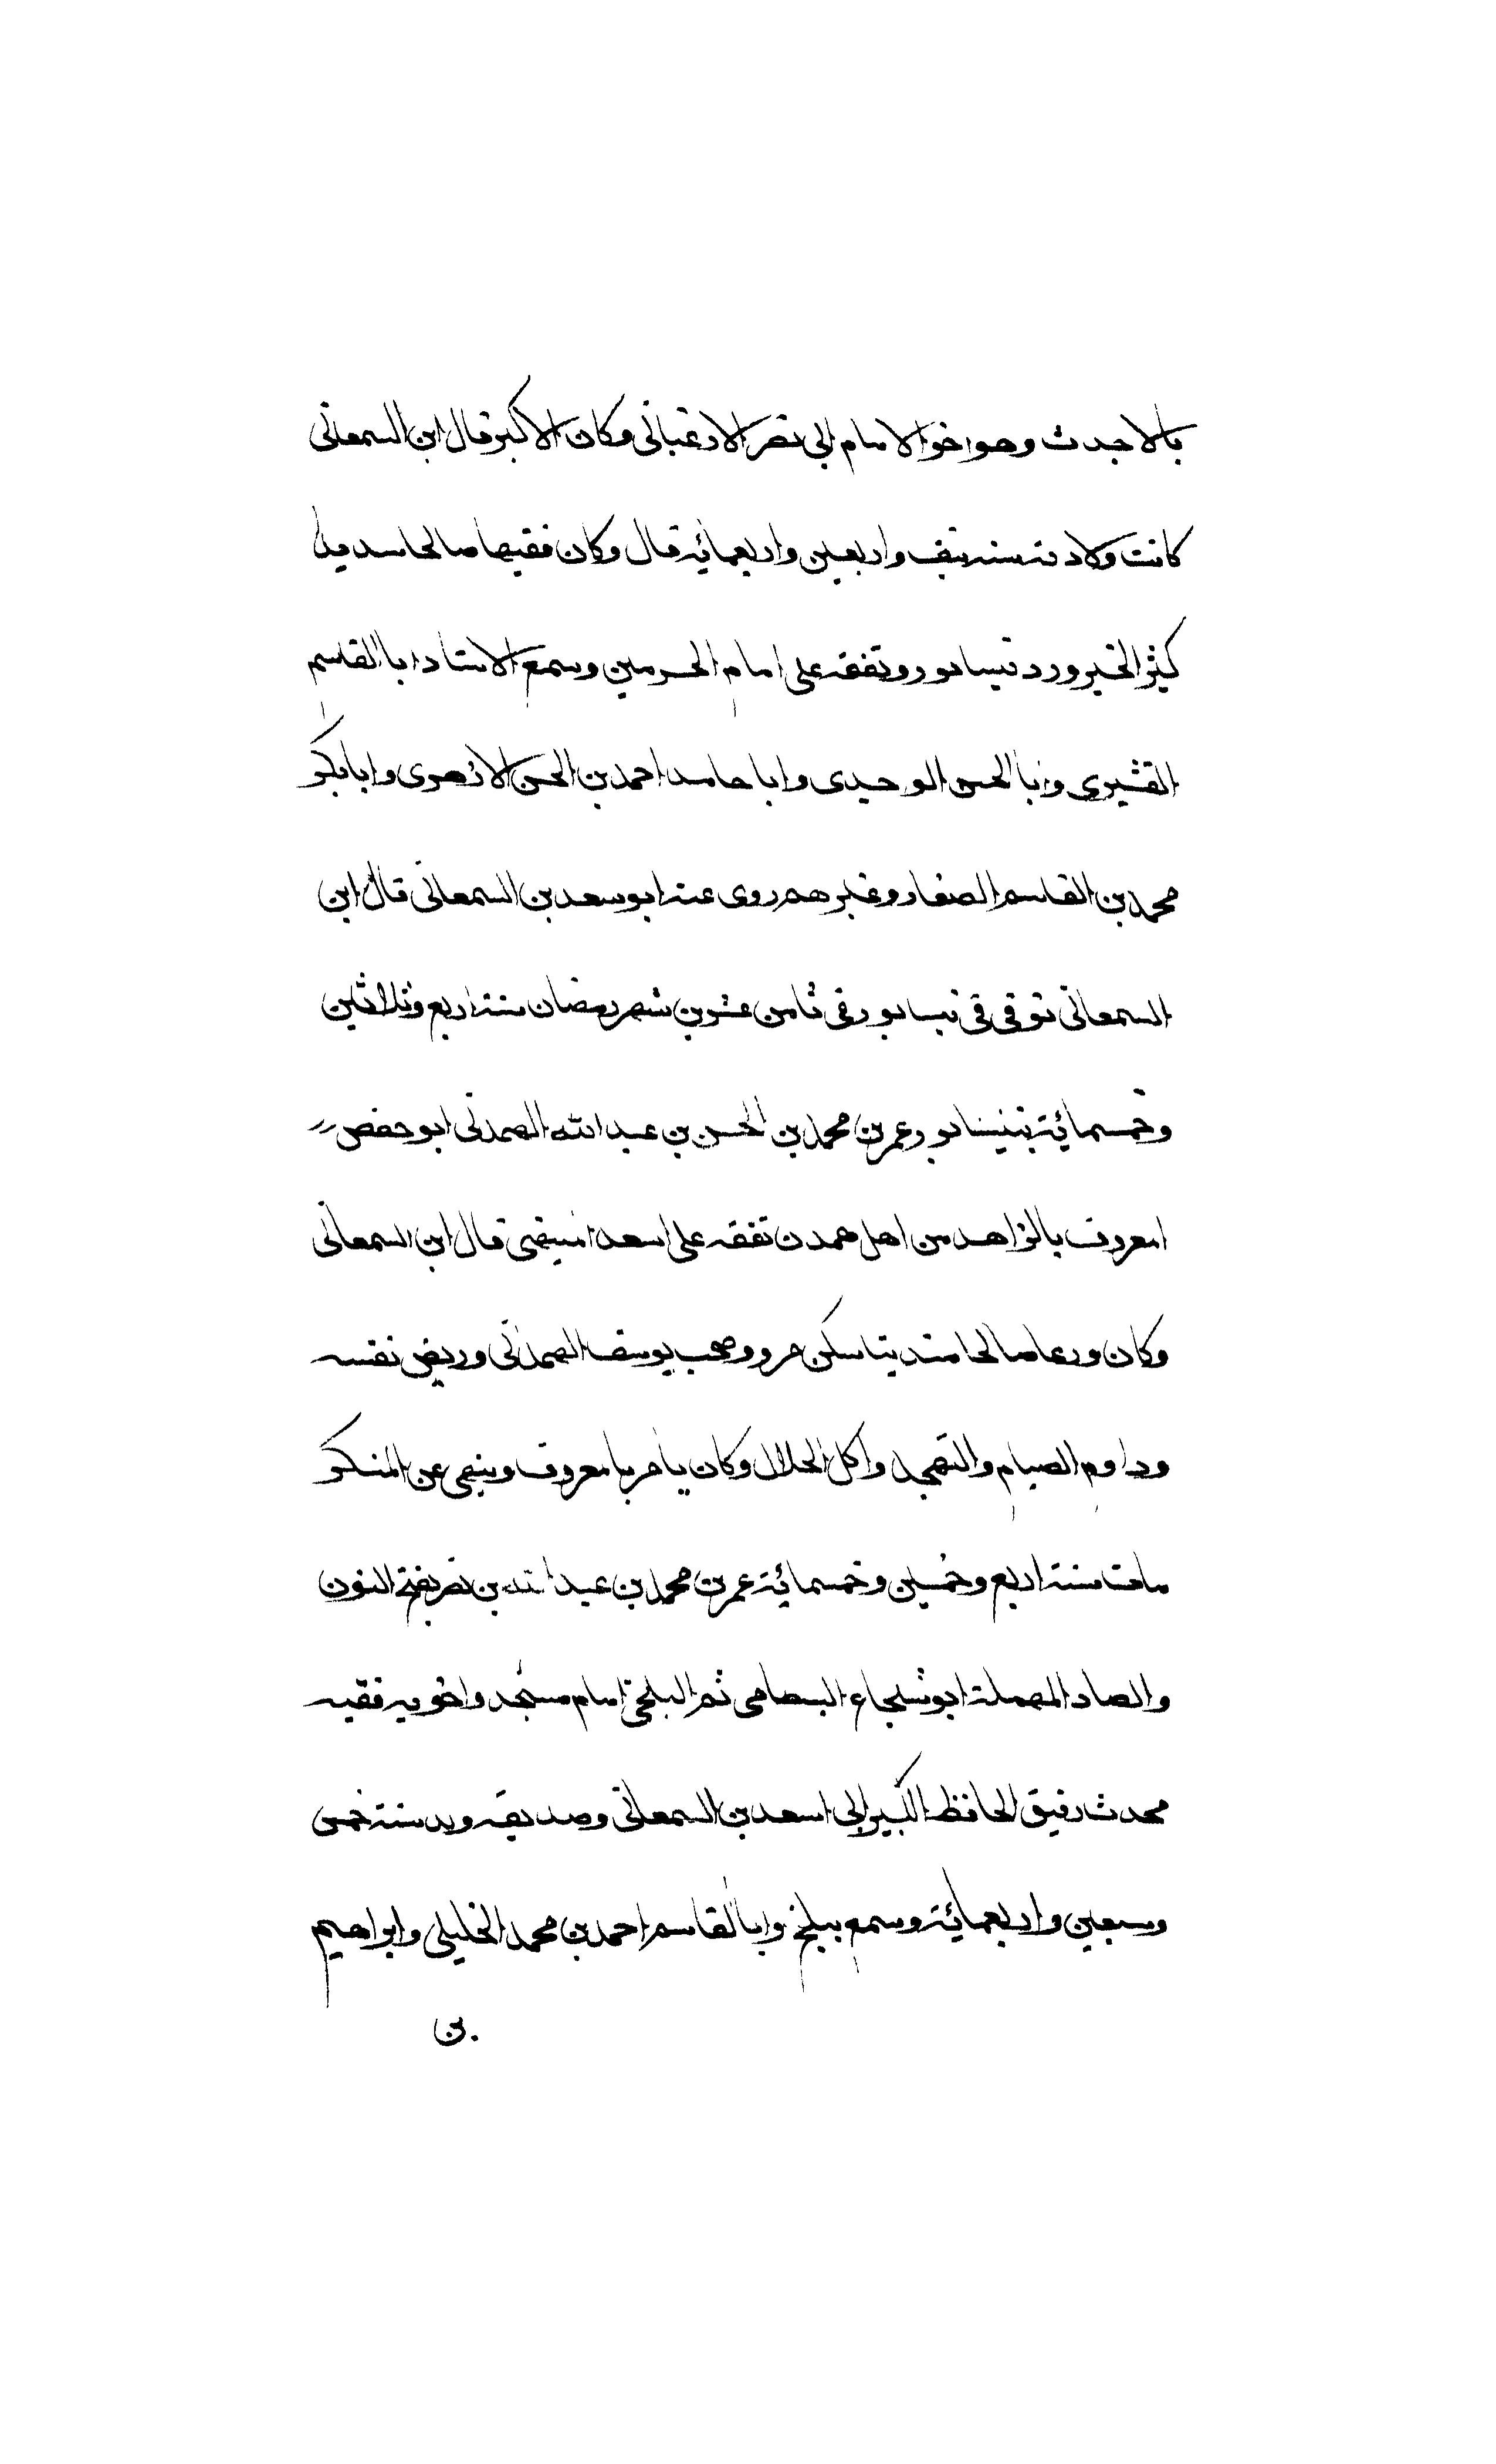 بالاحدث وهو اخو الامام ابى نصر الارغيانى وكان الاكبر قال ابن السمعانى
كانت ولادته سنه نيف واربعين واربعمائة قال وكان فقيها صالحا سديدا
كثير الخير ورد نيسابور وتفقه على امام الحرمين وسمع الاستاد ابا القاسم
القشيرى وابا الحسن الوحيدى وابا حامد احمد بن الحسن الازهرى وابا بكر
محمد بن القاسم الصفار وغيرهم روى عنه ابو سعد بن السمعانى قال ابن
السمعانى توفى فى نيسابور فى ثامن عشرين شهر رمضان سنة اربع وثلاثين
وخمسمائة بنيسابور عمر بن محمد بن الحسن بن عبد الله الهمدنى ابو حفص
امعروف بالزاهد من اهل همدن تفقه على اسعد الميهنى قال ابن السمعانى
وكان ورعا صالحا متدينا سكن مرو وصحب يوسف الهمدنى وريض نفسه
وداوم الصيام والتهجد واكل الحلال وكان يأمر بامعروف وينهى عن المنكر
مات سنة اربع وخمسين وخمسمائة عمر بن محمد بن عبد الله بن نصر بفتح النون
والصاد المهملة ابو شجاع البسطامى ثم البلخى امام مسجد راغوم فقيه
محدث رفيق الحافظ الكبير ابى اسعد بن السمعانى وصديقه ولد سنة خمس
وسبعين واربعمائة وسمع ببلخ وابا القاسم احمد بن محمد الخليلى وابراهيم
بن